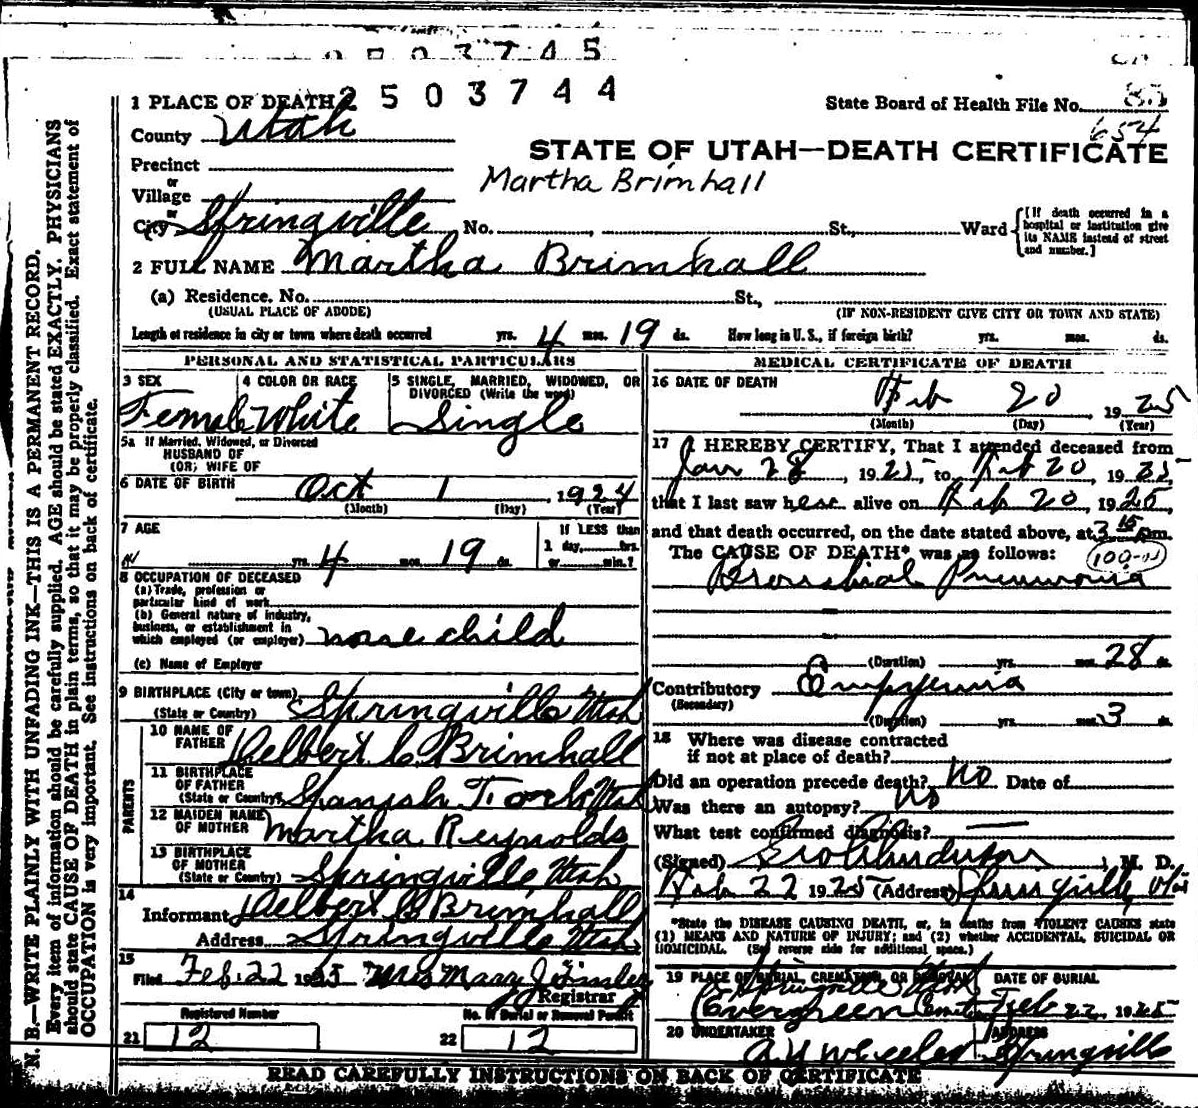 2503745
2503744
1 PLACE OF DEATH
State Board of Health File No. 85
654
County Utah
STATE OF UTAH—DEATH CERTIFICATE
Precinct
or
Martha Brimhall
Village
or
City Springville No. , St., Ward
[If death occurred in a
hospital or institution give
its NAME instead of street
and number.]
2 FULL NAME Martha Brimhall
(a) Residence. No. St.,
(USUAL PLACE OF ABODE) (IF NON-RESIDENT GIVE CITY OR TOWN AND STATE)
Length of residence in city or town where death occurred yrs. 4 mos. 19 ds. How long in U. S., if foreign birth? yrs. mos. ds.
PERSONAL AND STATISTICAL PARTICULARS
3 SEX
Female
4 COLOR OR RACE
White
5 SINGLE, MARRIED, WIDOWED, OR
DIVORCED (Write the word)
Single
5a If Married, Widowed, or Divorced
HUSBAND OF
(OR) WIFE OF
6 DATE OF BIRTH Oct 1, 1924
(Month) (Day) (Year)
7 AGE
yrs. 4 mos. 19 ds.
If LESS than
1 day, hrs.
or min.?
8 OCCUPATION OF DECEASED
(a) Trade, profession or
particular kind of work
(b) General nature of industry,
business, or establishment in
which employed (or employer) none child
(c) Name of Employer
9 BIRTHPLACE (City or town)
(State or Country) Springville Utah
PARENTS
10 NAME OF
FATHER Delbert C Brimhall
11 BIRTHPLACE
OF FATHER
(State or Country) Spanish Fork Utah
12 MAIDEN NAME
OF MOTHER Martha Reynolds
13 BIRTHPLACE
OF MOTHER
(State or Country) Springville, Utah
14
Informant Delbert C Brimhall
Address Springville Utah
15
Filed Feb. 22 1925 Mrs Mary J
Registrar
Registered Number
21 12
No. of Burial or Removal Permit
22 12
MEDICAL CERTIFICATE OF DEATH
16 DATE OF DEATH
Feb 20, 1925
(Month) (Day) (Year)
17 I HEREBY CERTIFY, That I attended deceased from
Jan 28, 1925, to Feb 20, 1925
that I last saw her alive on Feb 20, 1925,
and that death occurred, on the date stated above, at 3 15 pm.
The CAUSE OF DEATH* was as follows:
Bronchial Pneumonia
(Duration) yrs. mos. 28 ds.
Contributory Empyemia
(Secondary)
(Duration) yrs. mos. 3 ds.
18 Where was disease contracted
if not at place of death?
Did an operation precede death? No Date of
Was there an autopsy? No
What test confirmed diagnosis? —
(Signed) , M. D.
Feb 22 1925 (Address) Springville, Ut.
*State the DISEASE CAUSING DEATH, or, in deaths from VIOLENT CAUSES state
(1) MEANS AND NATURE OF INJURY; and (2) whether ACCIDENTAL, SUICIDAL OR
HOMICIDAL. (See reverse side for additional space.)
19 PLACE OF BURIAL, CREMATION, OR REMOVAL DATE OF BURIAL
Springville Utah
Evergreen Feb 22, 1925
20 UNDERTAKER ADDRESS
A Y Wheeler Springville
READ CAREFULLY INSTRUCTIONS ON BACK OF CERTIFICATE
N. B.—WRITE PLAINLY WITH UNFADING INK—THIS IS A PERMANENT RECORD.
Every item of information should be carefully supplied. AGE should be stated EXACTLY. PHYSICIANS
should state CAUSE OF DEATH in plain terms, so that it may be properly classified. Exact statement of
OCCUPATION is very important. See instructions on back of certificate.